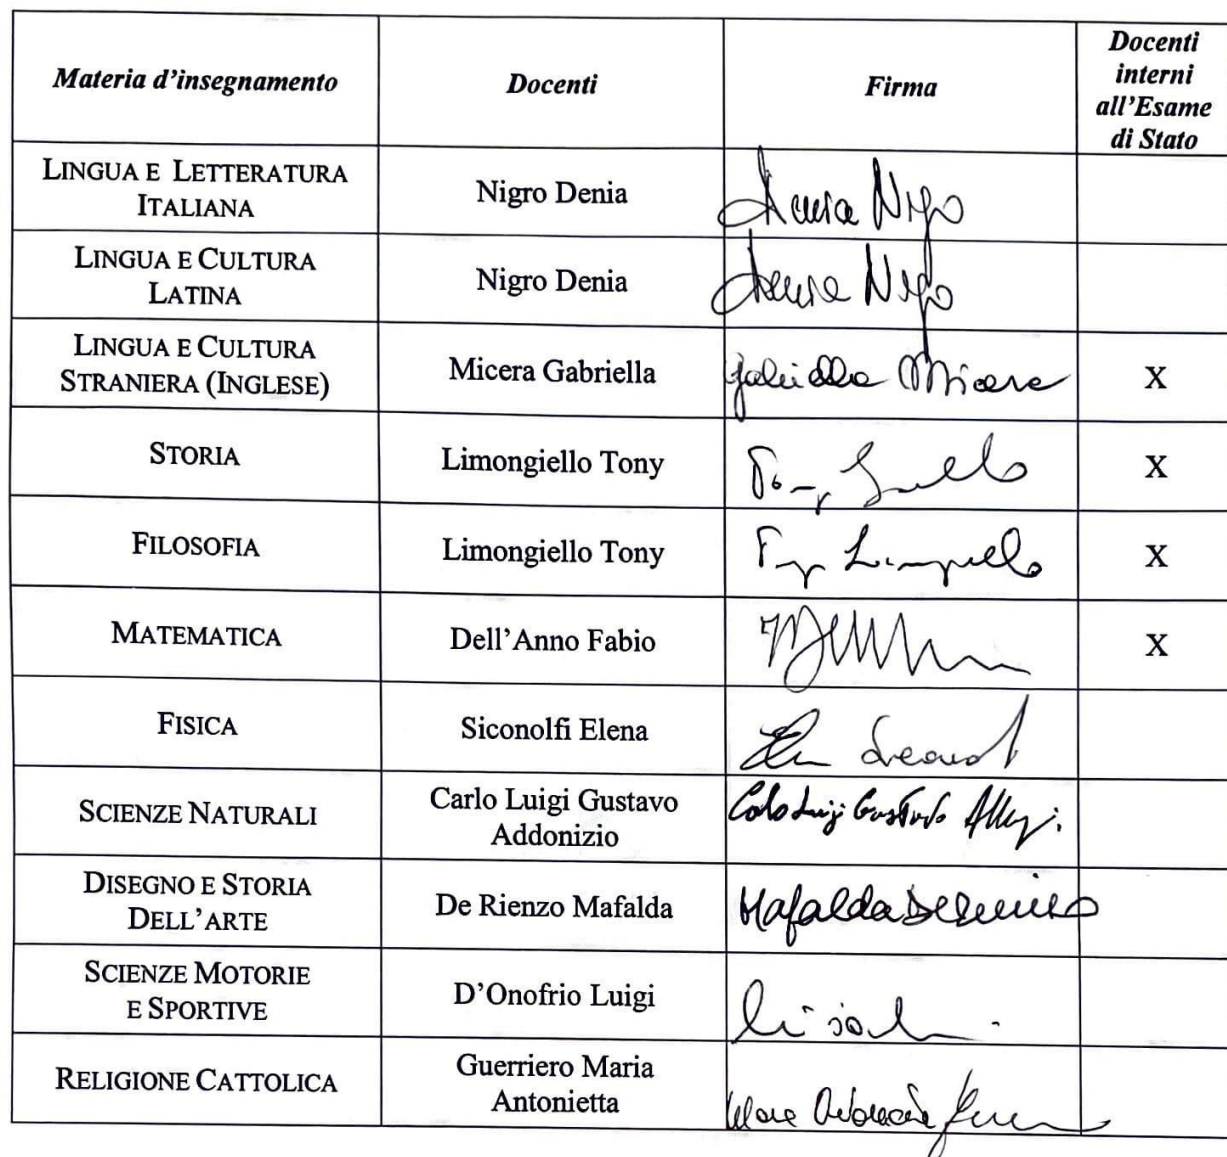 Materia d'insegnamento
Docenti
Firma
Docenti
interni
all'Esame
di Stato
LINGUA E LETTERATURA
ITALIANA
Nigro Denia
Denia Nigro
LINGUA E CULTURA
LATINA
Nigro Denia
Denia Nigro
LINGUA E CULTURA
STRANIERA (INGLESE)
Micera Gabriella
Gabriella Micera
X
STORIA
Limongiello Tony
X
FILOSOFIA
Limongiello Tony
X
MATEMATICA
Dell'Anno Fabio
X
FISICA
Siconolfi Elena
SCIENZE NATURALI
Carlo Luigi Gustavo
Addonizio
Carlo Luigi Gustavo
DISEGNO E STORIA
DELL'ARTE
De Rienzo Mafalda
Mafalda De Rienzo
SCIENZE MOTORIE
E SPORTIVE
D'Onofrio Luigi
RELIGIONE CATTOLICA
Guerriero Maria
Antonietta